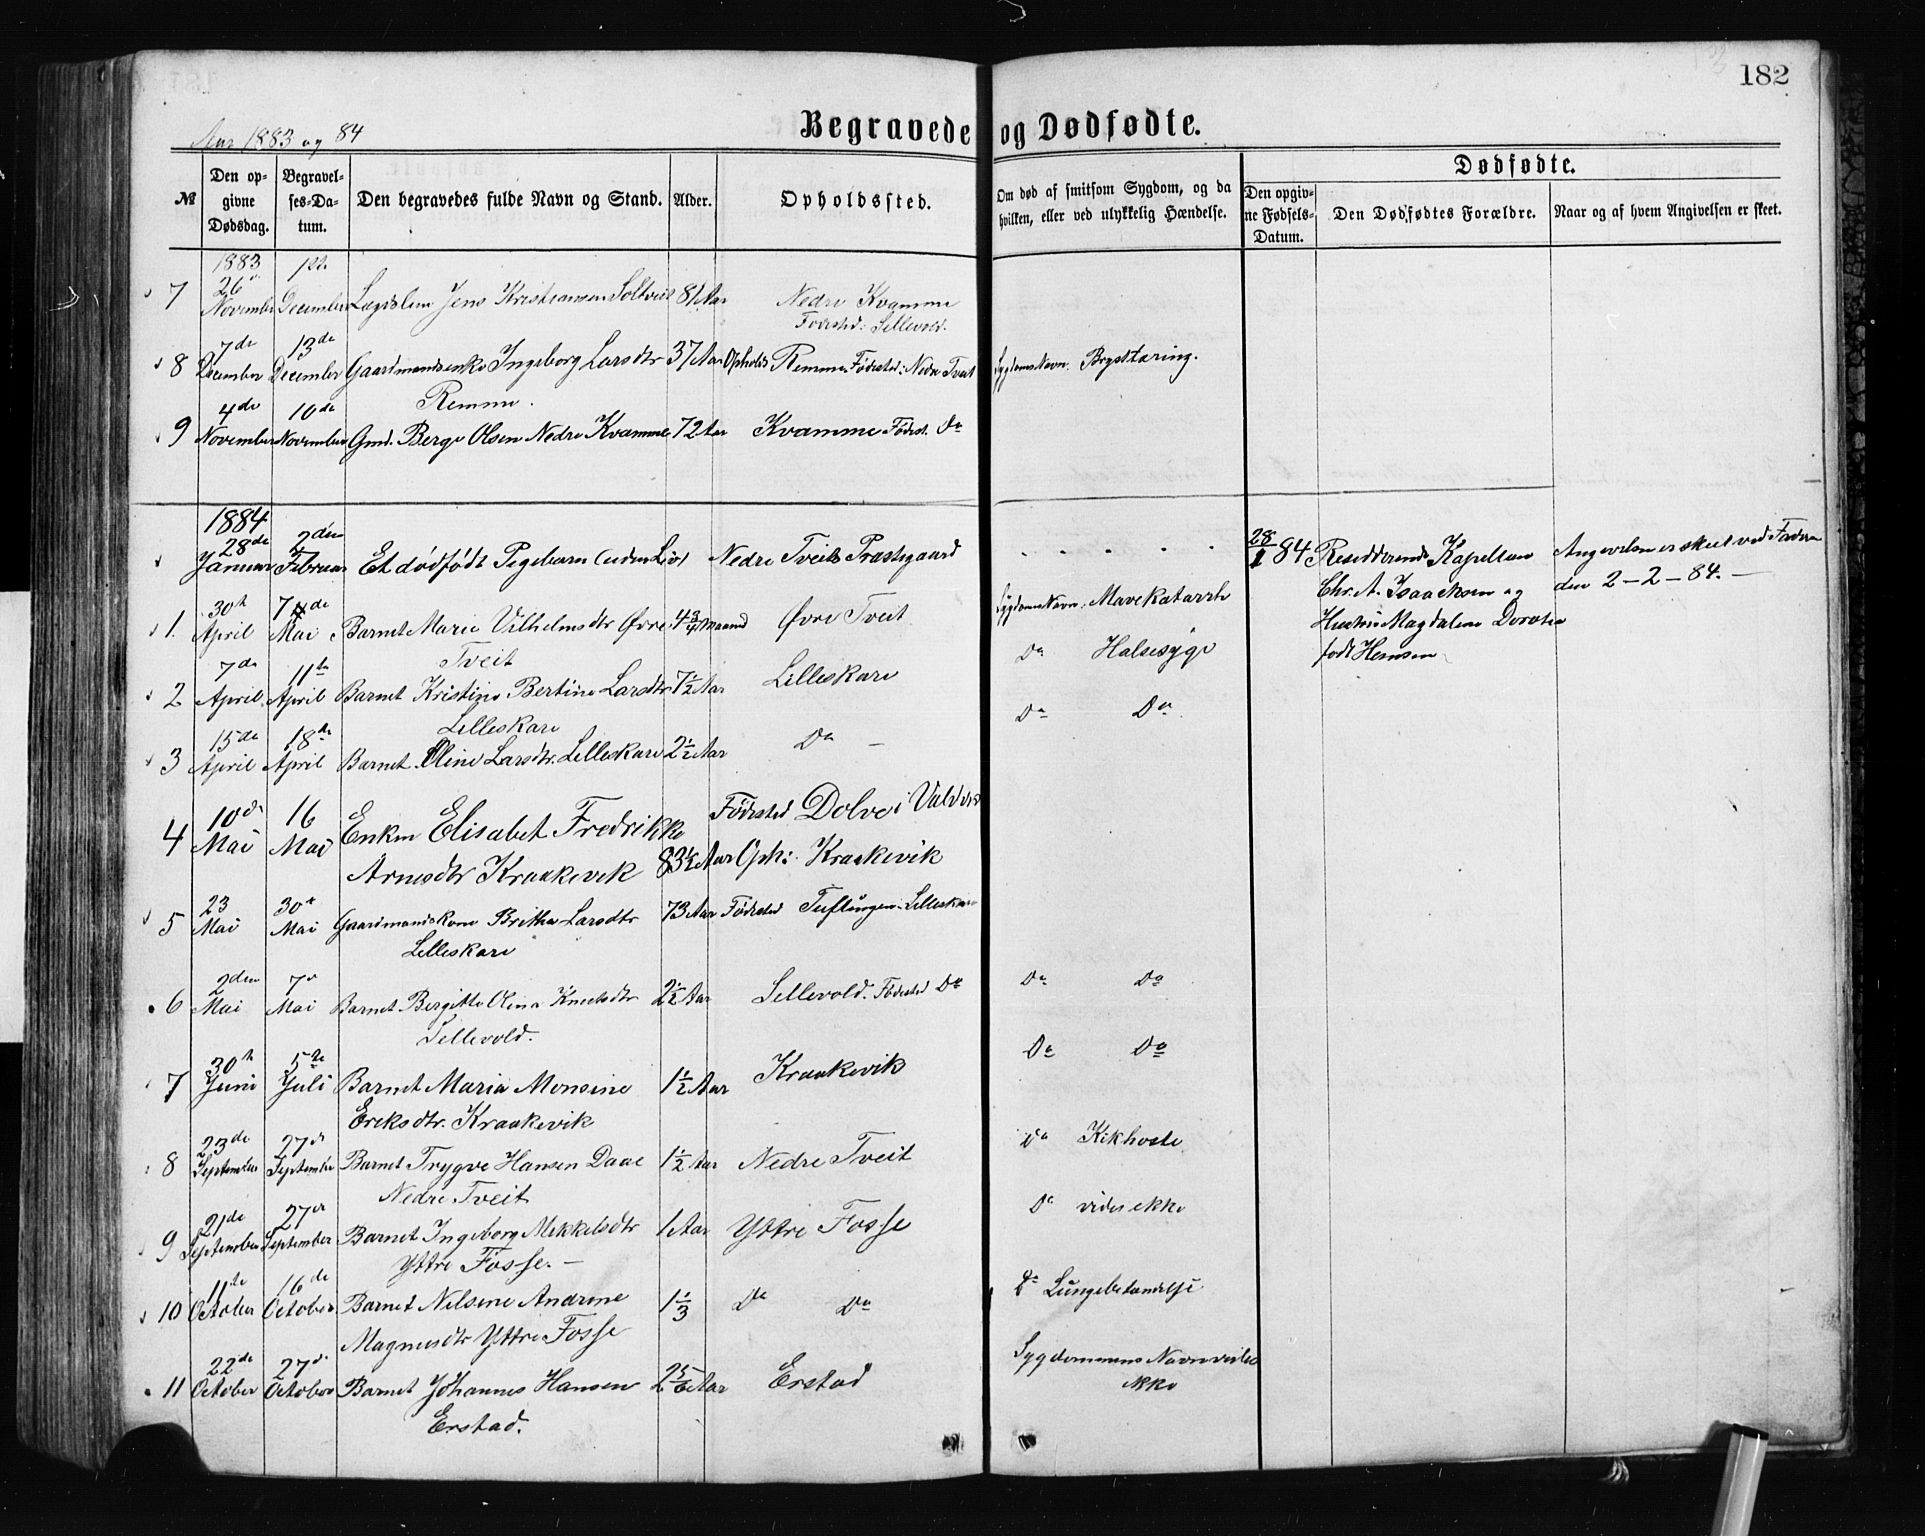 182
Aar 1883 og 84
Begravede og Dødfødte.
Dødfødte.
№
Den opgivne Dødsdag.
Begravelses-Datum.
Den begravedes fulde Navn og Stand.
Alder.
Opholdssted.
Om død af smitsom Sygdom, og da hvilken, eller ved ulykkelig Hændelse.
Den opgivne Fødsels-Datum.
Den Dødfødtes Forældre.
Naar og af hvem Angivelsen er skeet.
1883
7 26 November 1ste December Lægdslem Jens Kristiansen 81 Aar Nedre Kvamme
Fødested: Sellevold.
8 7de December 13de December Gaardmandsenke Ingeborg Larsdtr 37 Aar Opholds Remme Fødested: Nedre Tveit Sygdoms Navn: Brysttæring.
Remme.
9 4de November 10de November Gmd. Berge Olsen Nedre Kvamme 72 Aar Kvamme Fødest. Do
1884
28de Januar 2den Februar Et dødfødt Pigebarn (uden Liv) Nedre Tveits Præstgaard 28/1 84 Residderende Kapellan Angivelsen er skeet ved Faderen
Chr. A. Isaachsen og den 2-2-84.
Hustru Magdalene Dorotea
født Hemsen
1. 30te April 7de Mai Barnet Marie Vilhelmsdtr Øvre 4 3/4 Maaned Øvre Tveit Sygdoms Navn: Mavekatarrh
Tveit
2 7de April 11te April Barnet Kristine Bertine Larsdtr 7 1/2 Aar Lilleskare Do Halsesyge
Lilleskare
3 15de April 18de April Barnet Oline Larsdtr. Lilleskare 2 1/2 Aar Do Do Do
4 10de Mai 16 Mai Enken Elisabet Fredrikke Fødested Dolve i Valdres
Arnesdtr Kraakevik 83 1/2 Aar Oph: Kraakevik
5 23 Mai 30te Mai Gaardmandskone Britha Larsdtr 73 Aar Fødested Lilleskare
Lilleskare
6 2den Mai 7de Mai Barnet Bergitte Olina Knutsdtr 2 1/2 Aar Sellevold. Fødested Do Do Do
Sellevold.
7 30te Juni 5te Juli Barnet Maria Monsine 1 1/2 Aar Kraakevik Do Do
Eriksdtr. Kraakevik
8 23de September 27de September Barnet Trygve Hansen Daae 1 1/2 Aar Nedre Tveit Do Kikhoste
Nedre Tveit
9 21de September 27de September Barnet Ingeborg Mikkelsdtr 1 Aar Yttre Fosse Do vides ikke
Yttre Fosse.
10 11te October 16de October Barnet Nilsine Andrine 1 1/3 Do Do Do Lungebetændelse
Magnusdtr Yttre Fosse
11 22de October 27de October Barnet Johannes Hansen 2 5/6 Aar Erstad Sygdommens Navn vides
Erstad. ikke